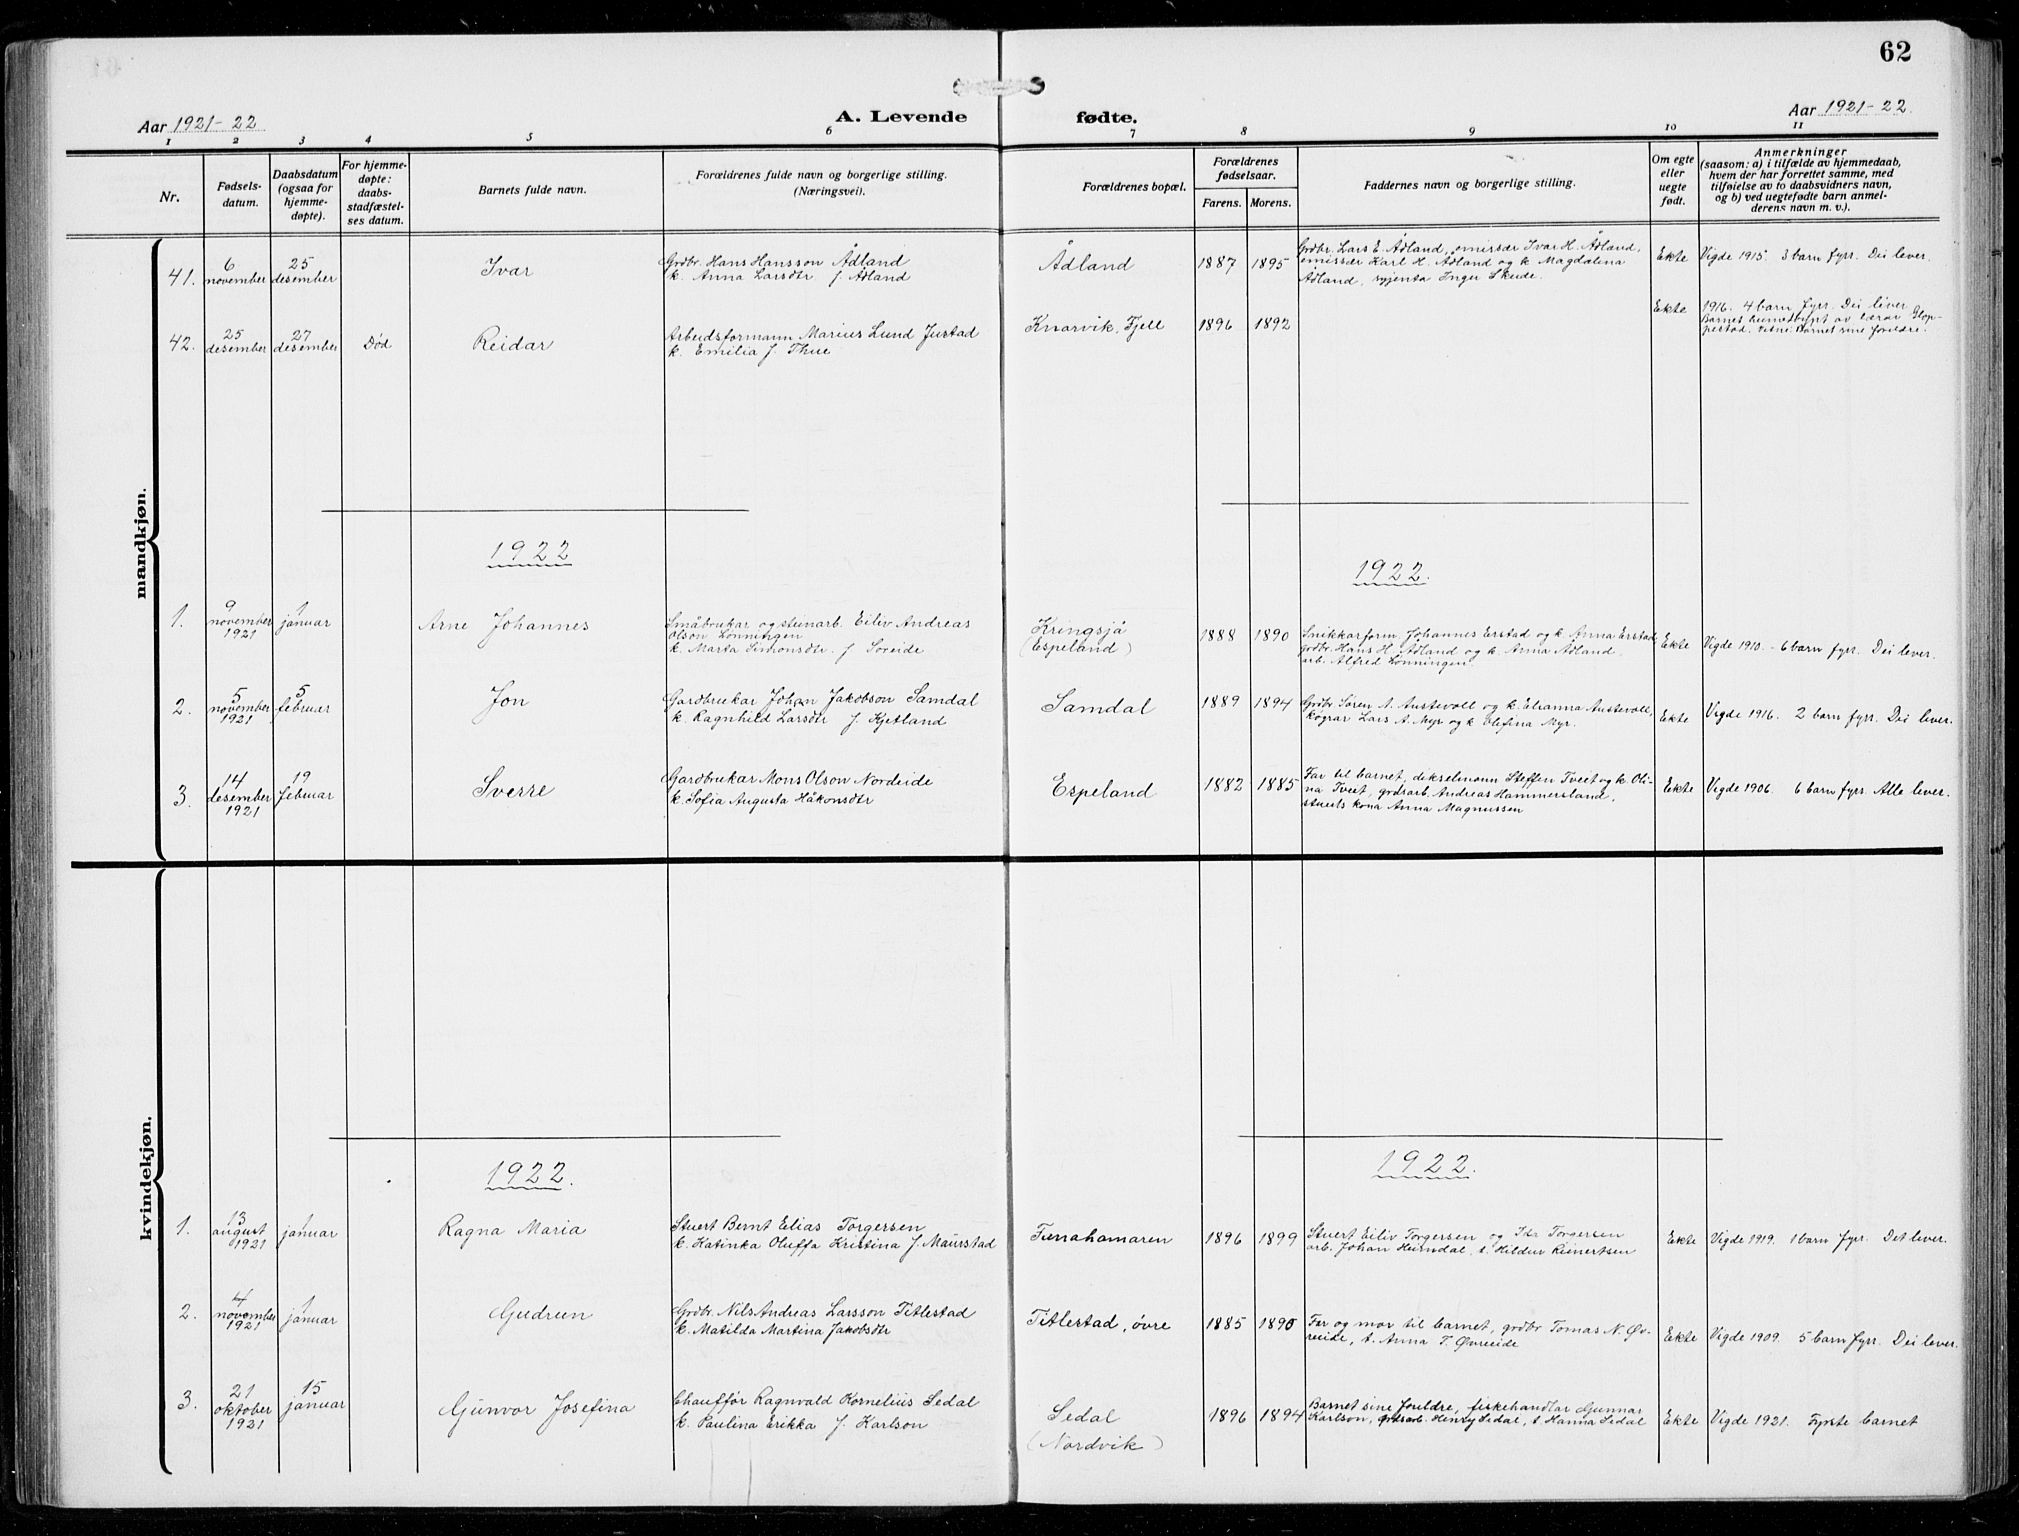 62
Aar 1921-22
A. Levende fødte.
Aar 1921-22.
1 2 3 4 5 6 7 8 9 10 11
Nr.
Fødsels-
datum.
Daabsdatum
(ogsaa for
hjemme-
døpte).
For hjemme-
døpte:
daabs-
stadfæstel-
ses datum.
Barnets fulde navn.
Forældrenes fulde navn og borgerlige stilling.
(Næringsvei).
Forældrenes bopæl.
Forældrenes
fødselsaar.
Farens. Morens.
Faddernes navn og borgerlige stilling.
Om egte
eller
uegte
født.
Anmerkninger
(saasom: a) i tilfælde av hjemmedaab,
hvem der har forrettet samme, med
tilføielse av to daabsvidners navn,
og b) ved uegtefødte barn anmel-
derens navn m. v.).
mandkjøn.
41.
6
november
25
desember
Ivar
Grdbr. Hans Hansson Ådland
k. Anna Larsdtr. f. Ådland
Ådland
1887 1895
Grdbr. Lars E. Ådland, emissær Ivar H. Ådland,
emissær Karl H. Ådland og k. Magdalena
Ådland, gjenta Inger Skeide.
Ekte
Vigde 1915. 3 barn fyrr. Dei lever.
42.
25
desember
27
desember
Død
Reidar
Arbeidsformann Marius Lund Justad
k. Emilia f. Thue
Knarvik, Fjell
1896 1892
Ekte
1916. 4 barn fyrr. Dei liver
Barnet heimedøypt av lærar Glop-
pestad. Vitne: Barnet sine foreldre.
1922
1922.
1.
9
november
1921
1
januar
Arne Johannes
Småbrukar og steinarb. Eiliv Andreas
Olson Lønningen
k. Marta Simonsdtr. f. Søreide
Kringsjå
(Espeland)
1888 1890
Snikkarform. Johannes Erstad og k. Anna Erstad
grdbr. Hans H. Ådland og k. Anna Ådland.
arb. Alfred Lønningen
Ekte
Vigde 1910. - 6 barn fyrr. Dei lever.
2.
5
november
1921
5
februar
Jon
Gardbrukar Johan Jakobson Samdal
k. Ragnhild Larsdtr f. Kjetland
Samdal
1889 1894
Grdbr Søren A. Austevoll og k. Elianna Austevoll,
Lars A. Myr og k. Olefina Myr.
Ekte
Vigde 1916. 2 barn fyrr. Dei lever.
3.
14
desember
1921
19
februar
Sverre
Gardbrukar Mons Olson Nordeide
k. Sofia Augusta Håkonsdtr
Espeland
1882 1885
Far til barnet, dikselmann Steffen Tveit og k. Oli-
na Tveit, grdsarb. Andreas Hammersland,
stuerts kona Anna Magnussen
Ekte
Vigde 1906. 6 barn fyrr. Alle lever.
kvindekjøn.
1922.
1922.
1.
13
august
1921
1
januar
Ragna Maria
Stuert Bernt Elias Torgersen
k. Katinka Oluffa Kristina f. Maurstad
Tunahamaren
1896 1899
Stuert Eiliv Torgersen og Torgersen
arb. Johan Heimdal, t. Hildur Reinertsen
Ekte
Vigde 1919. 1 barn fyrr. Det lever.
2.
4
november
1921
1
januar
Gudrun
Grdbr. Nils Andreas Larsson Titlestad
k. Matilda Martina Jakobsdtr
Titlestad, øvre
1885 1890
Far og mor til barnet, grdbr Tomas N. Øv-
reeide, t. Anna T. Øvreeide
Ekte
Vigde 1909. 5 barn fyrr. Dei lever.
3.
21
oktober
1921
15
januar
Gunvor Josefina
Chauffør Ragnvald Kornelius Sedal
k. Paulina Erikka f. Karlson
Sedal
(Nordvik)
1896 1894
Barnet sine foreldre, fiskehandlar Gunnar
Karlson, grdsarb. Henry Sedal, t. Hanna Sedal
Ekte
Vigde 1921. Fyrste barnet